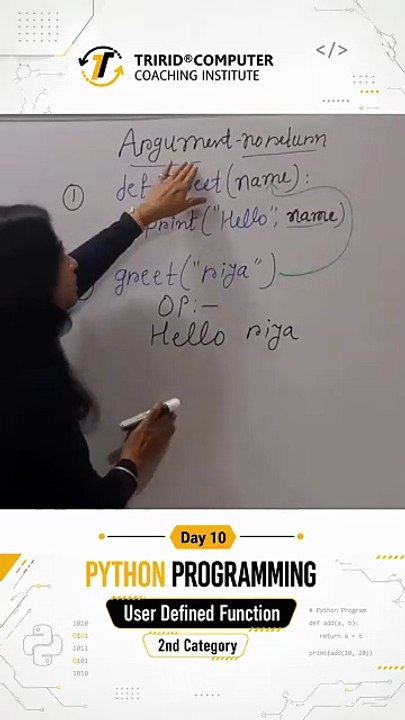 TRIRID®COMPUTER
COACHING INSTITUTE
</>
Argument-noreturn
① def greet(name):
print("Hello", name)
greet("riya")
OP:-
Hello riya
Day 10
PYTHON PROGRAMMING
User Defined Function
2nd Category
1010
0101
1011
0101
1010
# Python Program
def add(a, b):
return a + b
print(add(10, 20))